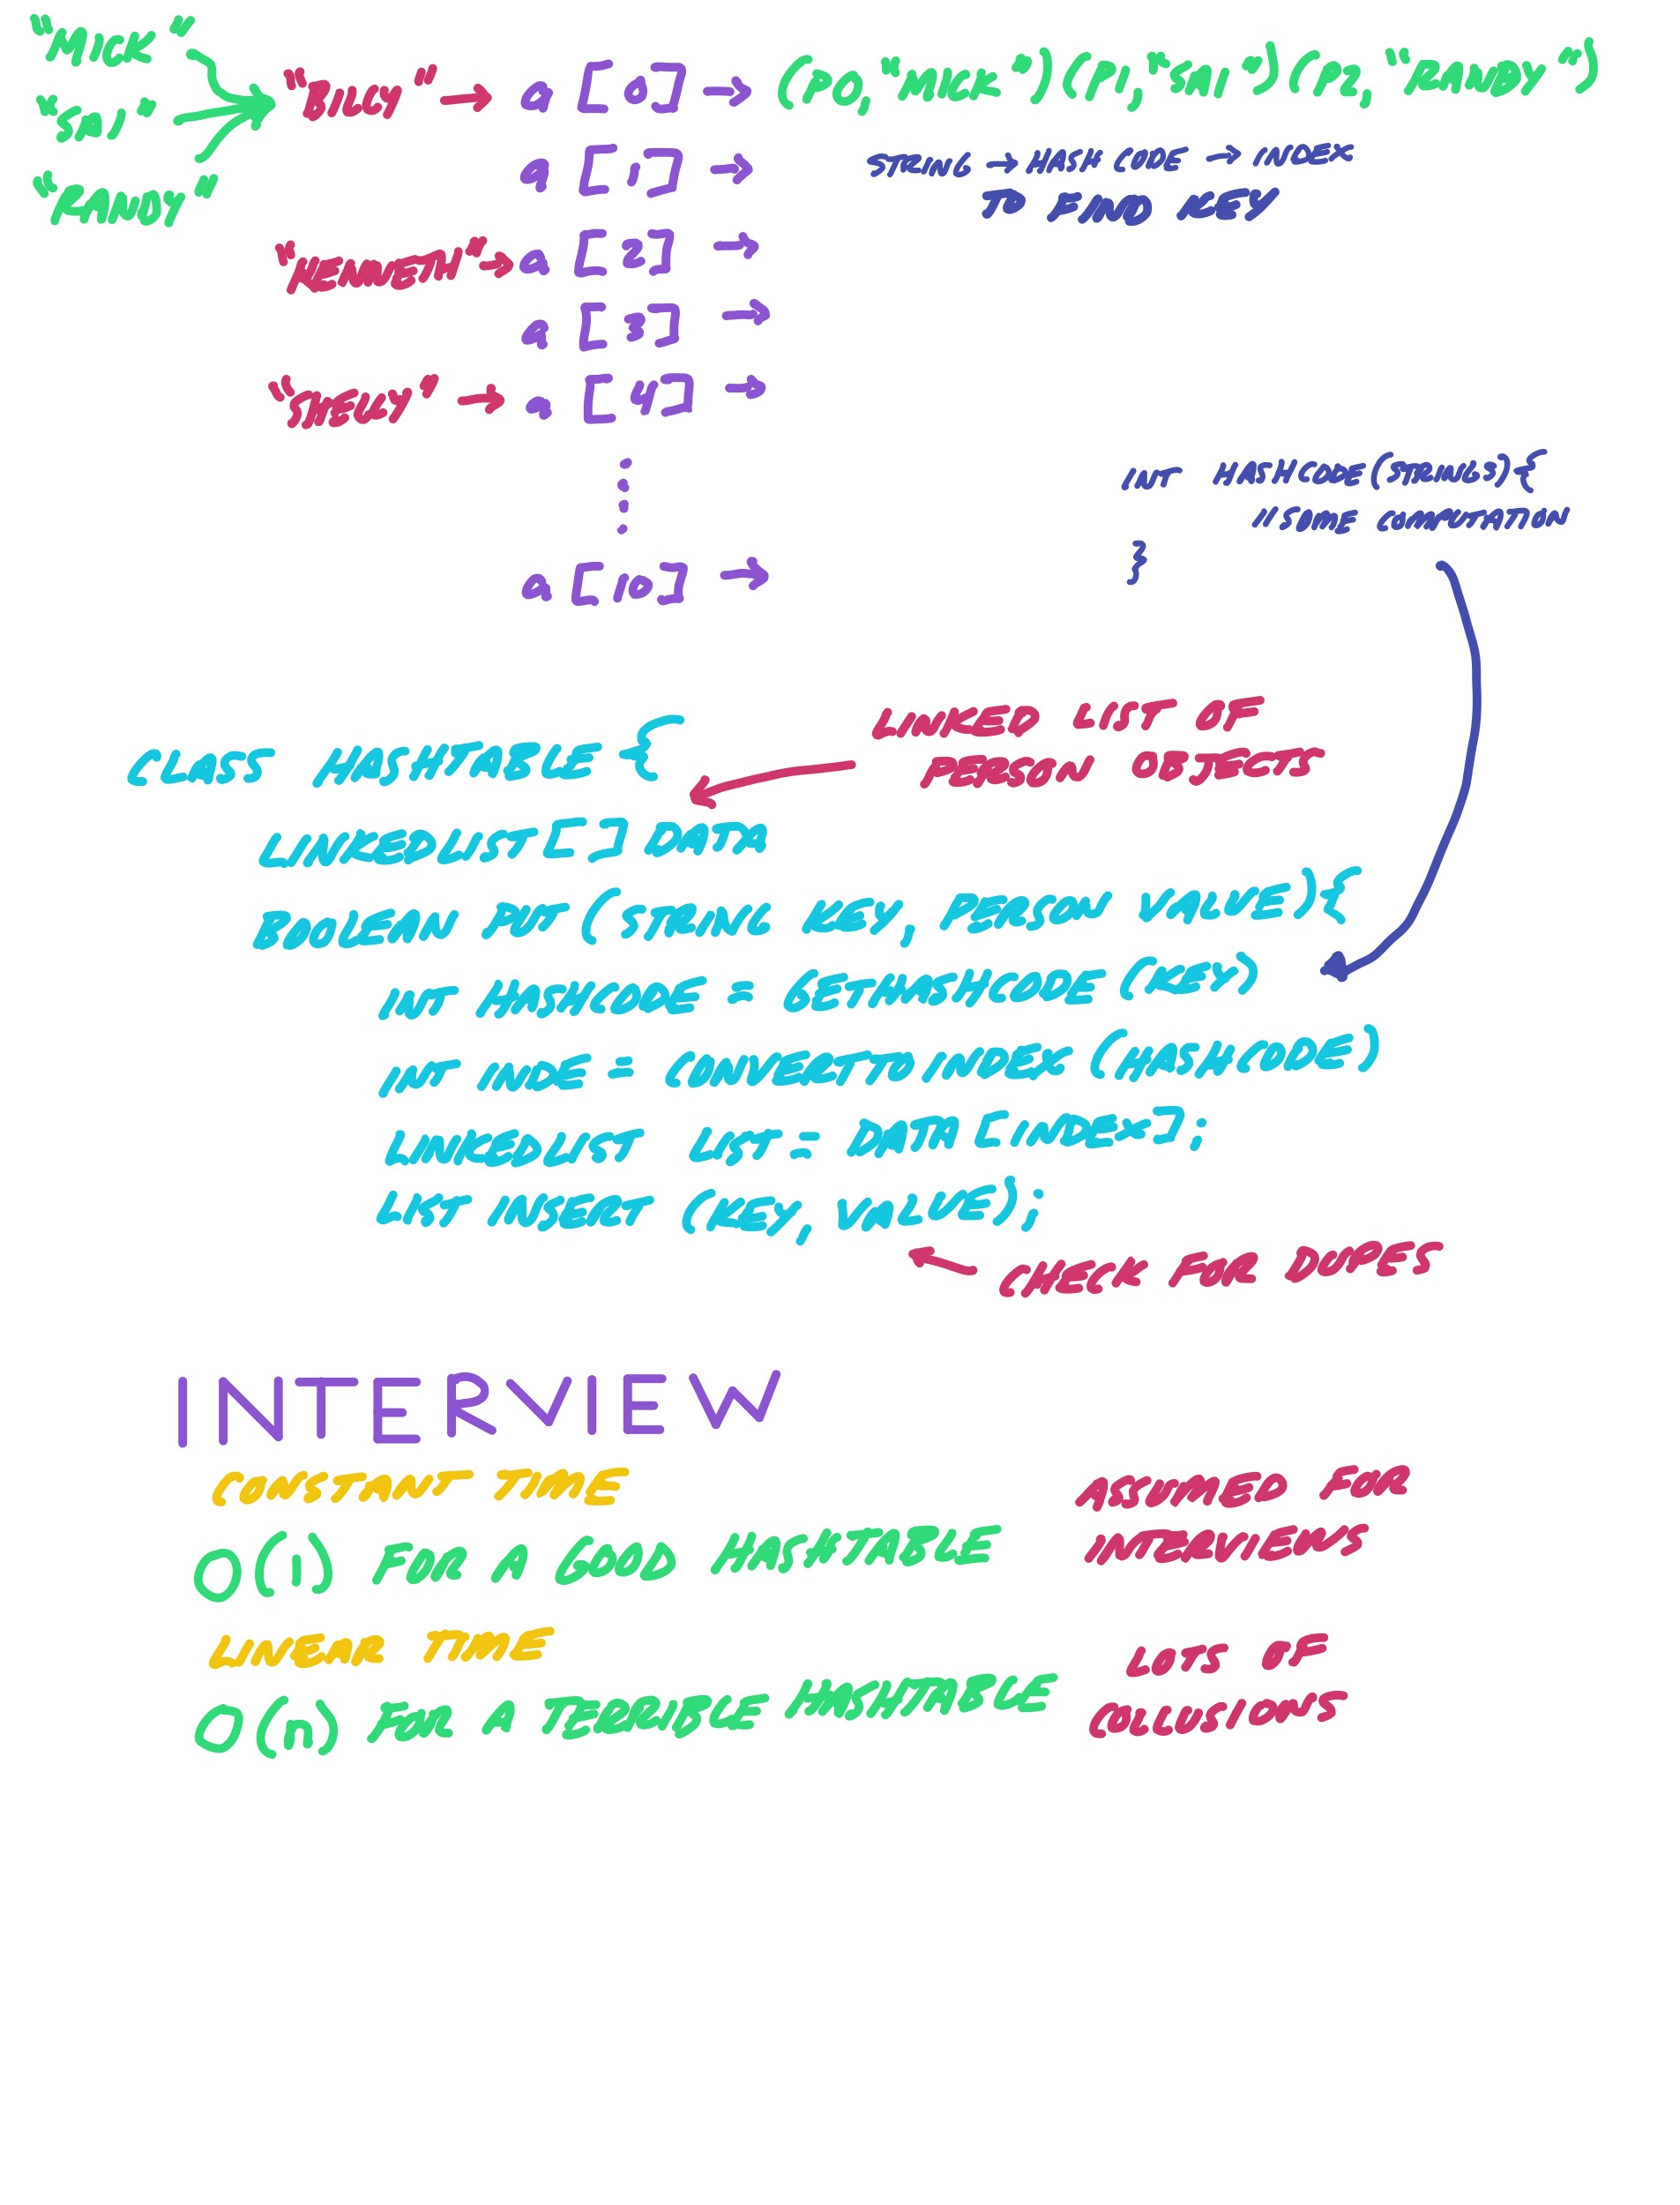 "MICK"
"SAI"
"RANDY"
"BILLY" → a [0] → (P0, "MICK") (P1, "SAI") (P2, "RANDY")
a [1] →
STRING → HASH CODE → INDEX
TO FIND KEY
"KENNETH" → a [2] →
a [3] →
"SHELLY" → a [4] →
a [10] →
INT HASHCODE(STRING S){
// SOME COMPUTATION
}
LINKED LIST OF
PERSON OBJECTS
CLASS HASHTABLE {
LINKEDLIST [ ] DATA
BOOLEAN PUT (STRING KEY, PERSON VALUE){
INT HASHCODE = GETHASHCODE (KEY)
INT INDE = CONVERTTO INDEX (HASHCODE)
LINKEDLIST LIST = DATA [INDEX];
LIST INSERT (KEY, VALUE);
CHECK FOR DUPES
INTERVIEW
CONSTANT TIME
O(1) FOR A GOOD HASHTABLE
ASSUMED FOR
INTERVIEWS
LINEAR TIME
O(n) FOR A TERRIBLE HASHTABLE
LOTS OF
COLLUSIONS